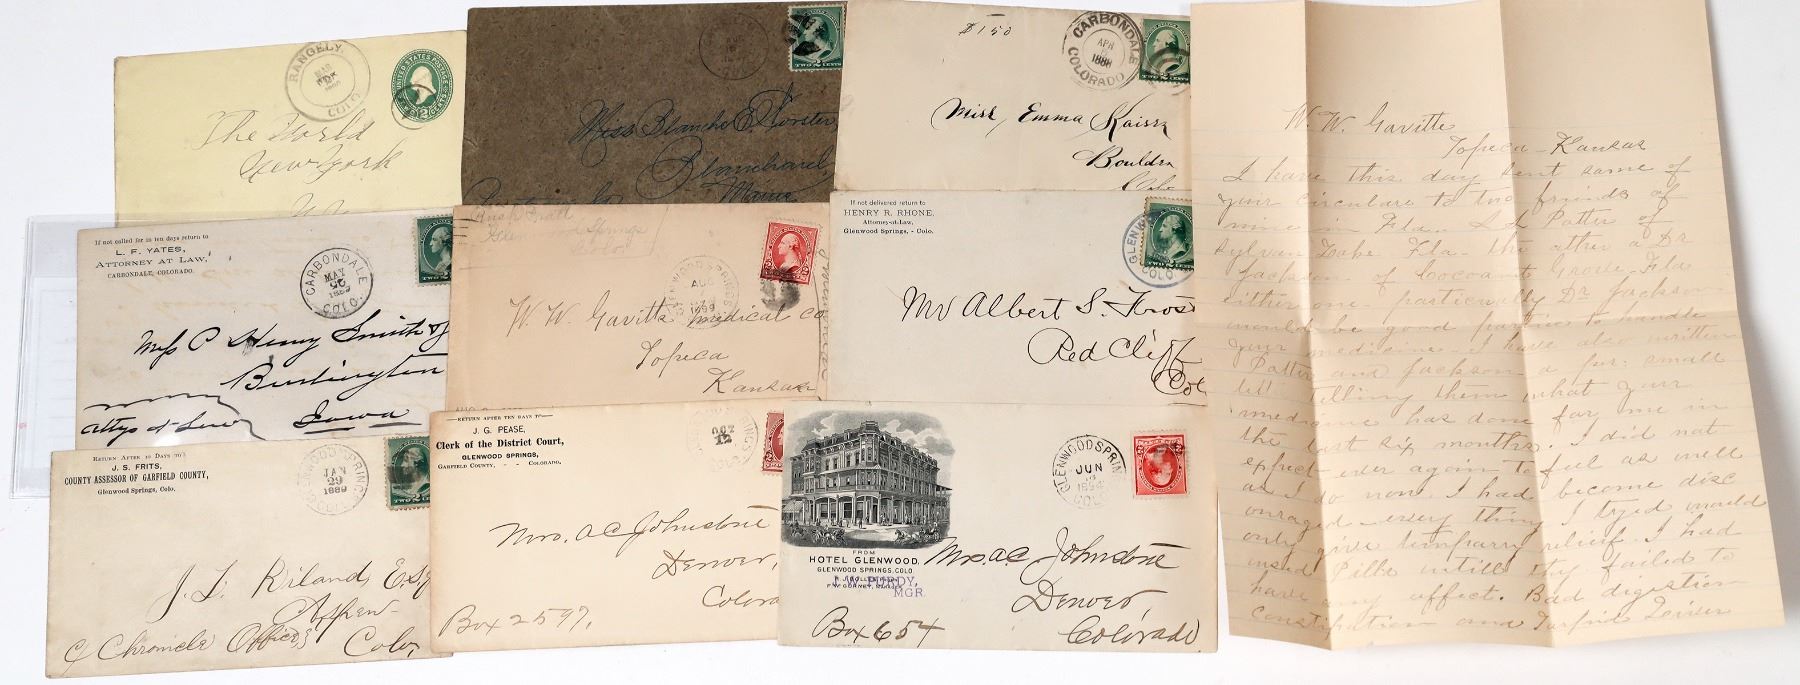 RANGELY,
MAR
COLO.
UNITED STATES POSTAGE
2 CENTS
The World
New York
N.Y.
TWO CENTS
Miss Blanche E. Forster,
Blanchard,
Maine
$150
CARBONDALE
APR
1888
COLORADO
TWO CENTS
Miss Emma
Boulder
Colo
If not called for in ten days return to
L. F. YATES,
ATTORNEY AT LAW,
CARBONDALE, COLORADO.
CARBONDALE
MAY
COLO.
TWO CENTS
Mess P Henry Smith &
Burlington
Iowa
Attys at Law
Glenwood Springs
GLENWOOD SPRINGS
AUG
1899
W. W. Gavitts medical Co
Topeca
Kansas
If not delivered return to
HENRY R. RHONE,
Attorney-at-Law,
Glenwood Springs, - Colo.
GLENW
COLO
TWO CENTS
Mr Albert S. Kros
Red Cliff
Col
RETURN AFTER 10 DAYS TO
J. S. FRITS,
COUNTY ASSESSOR OF GARFIELD COUNTY,
Glenwood Springs, Colo.
GLENWOOD SPRINGS
JAN
29
1889
COLO.
TWO CENTS
J. L. Riland, Esq
Aspen
℅ Chronicle Office,
Colo,
RETURN AFTER TEN DAYS TO
J. G. PEASE,
Clerk of the District Court,
GLENWOOD SPRINGS,
GARFIELD COUNTY, - - COLORADO.
OCT
12
Mrs. A C Johnstone
Denver,
Colora
Box 2597,
FROM
HOTEL GLENWOOD.
GLENWOOD SPRINGS, COLO.
PURDY,
MGR.
GLENWOOD SPRIN
JUN
1894
COLO.
Mrs. A C Johnstone
Denver,
Colorado.
Box 654
W. W. Gavitts
Topeca - Kansas
I have this day sent some of
your circulars to two friends of
mine in Fla. S L Patter of
Sylvan Lake Fla - the other a Dr
Jackson of Cocoanut Grove - Fla
either one, particually Dr Jackson
would be good parties to handle
your medicine - I have also written
Patter and Jackson a few small
telling them what your
medicine has done for me in
the last six months. I did not
expect ever again to feel as well
as I do now. I had become disc
ouraged - every thing I tryed would
only give temporary relief. I had
used Pills untill they failed to
have any effect. Bad digestion
constipation and Turpid Leiver